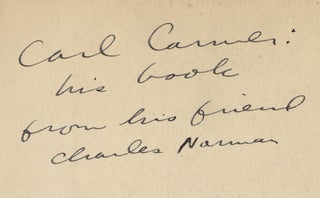 Carl Carmer:
his book
from his friend
Charles Norman